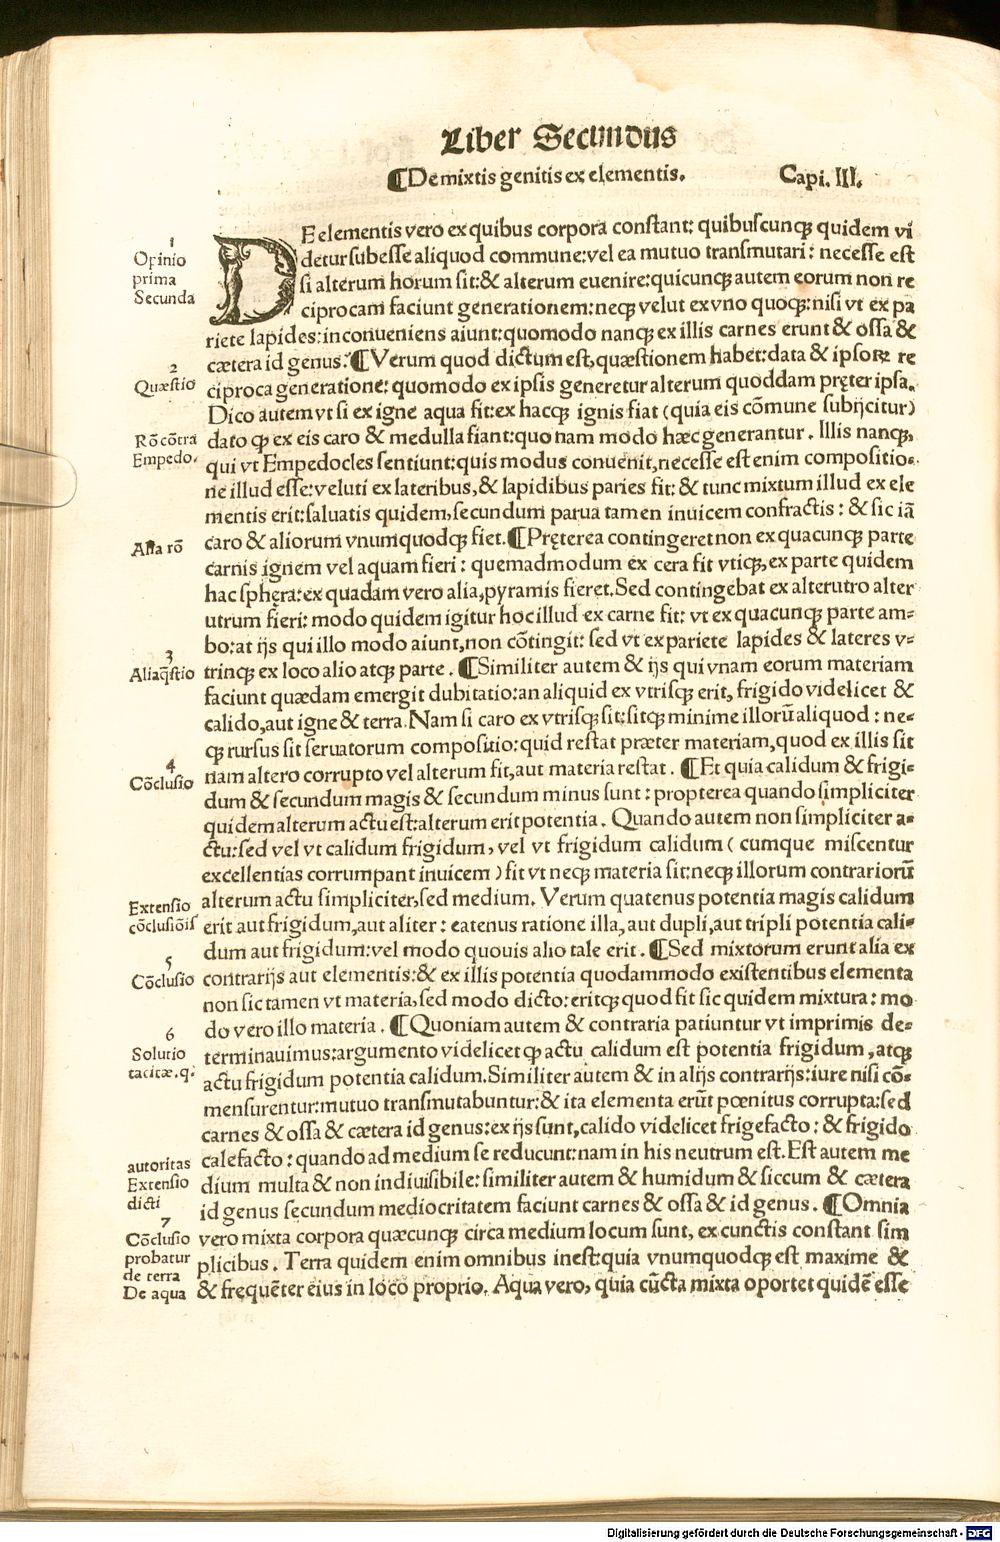 Liber Secundus
¶De mixtis genitis ex elementis. Capi. III.
1
Opinio
prima
Secunda
DE elementis vero ex quibus corpora constant: quibuscunqꝫ quidem vi
detur subesse aliquod commune: vel ea mutuo transmutari: necesse est
si alterum horum sit: & alterum euenire: quicunqꝫ autem eorum non re
ciprocam faciunt generationem: neqꝫ velut ex vno quoqꝫ: nisi vt ex pa
riete lapides: inconueniens aiunt: quomodo nanqꝫ ex illis carnes erunt & ossa &
cætera id genus. ¶Verum quod dictum est, quæstionem habet: data & ipsoꝝ re
2
Quæstio
ciproca generatione: quomodo ex ipsis generetur alterum quoddam pręter ipsa.
Dico autem vt si ex igne aqua fit: ex hacqꝫ ignis fiat (quia eis cōmune subijcitur)
Rō cōtra
Empedo.
dato ꝙ ex eis caro & medulla fiant: quo nam modo hæc generantur. Illis nanqꝫ,
qui vt Empedocles sentiunt: quis modus conuenit, necesse est enim compositio-
ne illud esse: veluti ex lateribus, & lapidibus paries fit: & tunc mixtum illud ex ele
mentis erit: saluatis quidem, secundum parua tamen inuicem confractis: & sic iā
Alia rō
caro & aliorum vnumquodqꝫ fiet. ¶Pręterea contingeret non ex quacunqꝫ parte
carnis ignem vel aquam fieri: quemadmodum ex cera fit vtiqꝫ, ex parte quidem
hac sphęra: ex quadam vero alia, pyramis fieret. Sed contingebat ex alterutro alter
utrum fieri: modo quidem igitur hoc illud ex carne fit: vt ex quacunqꝫ parte am-
bo: at ijs qui illo modo aiunt, non cōtingit: sed vt ex pariete lapides & lateres v-
3
Alia q̄stio
trinqꝫ ex loco alio atqꝫ parte. ¶Similiter autem & ijs qui vnam eorum materiam
faciunt quædam emergit dubitatio: an aliquid ex vtrisqꝫ erit, frigido videlicet &
calido, aut igne & terra. Nam si caro ex vtrisqꝫ sit: sitqꝫ minime illorū aliquod: ne-
qꝫ rursus sit seruatorum compositio: quid restat præter materiam, quod ex illis sit
4
Cōclusio
nam altero corrupto vel alterum fit, aut materia restat. ¶Et quia calidum & frigi-
dum & secundum magis & secundum minus sunt: propterea quando simpliciter
quidem alterum actu est: alterum erit potentia. Quando autem non simpliciter a-
ctu: sed vel vt calidum frigidum, vel vt frigidum calidum (cumque miscentur
excellentias corrumpant inuicem) fit vt neqꝫ materia sit: neqꝫ illorum contrariorū
Extensio
cōclusiōis
alterum actu simpliciter, sed medium. Verum quatenus potentia magis calidum
erit aut frigidum, aut aliter: eatenus ratione illa, aut dupli, aut tripli potentia cali-
dum aut frigidum: vel modo quouis alio tale erit. ¶Sed mixtorum erunt alia ex
5
Cōclusio
contrarijs aut elementis: & ex illis potentia quodammodo existentibus elementa
non sic tamen vt materia, sed modo dicto: eritqꝫ quod fit sic quidem mixtura: mo
6
Solutio
tacitæ. q.
do vero illo materia. ¶Quoniam autem & contraria patiuntur vt imprimis de-
terminauimus: argumento videlicet ꝙ actu calidum est potentia frigidum, atqꝫ
actu frigidum potentia calidum. Similiter autem & in alijs contrarijs: iure nisi cō-
mensurentur: mutuo transmutabuntur: & ita elementa erūt pœnitus corrupta: sed
carnes & ossa & cætera id genus: ex ijs sunt, calido videlicet frigefacto: & frigido
autoritas
Extensio
dicti
calefacto: quando ad medium se reducunt: nam in his neutrum est. Est autem me
dium multa & non indiuisibile: similiter autem & humidum & siccum & cætera
id genus secundum mediocritatem faciunt carnes & ossa & id genus. ¶Omnia
7
Cōclusio
probatur
de terra
De aqua
vero mixta corpora quæcunqꝫ circa medium locum sunt, ex cunctis constant sim
plicibus. Terra quidem enim omnibus inest: quia vnumquodqꝫ est maxime &
& frequēter eius in loco proprio. Aqua vero, quia cūcta mixta oportet quidē esse
Digitalisierung gefördert durch die Deutsche Forschungsgemeinschaft - DFG